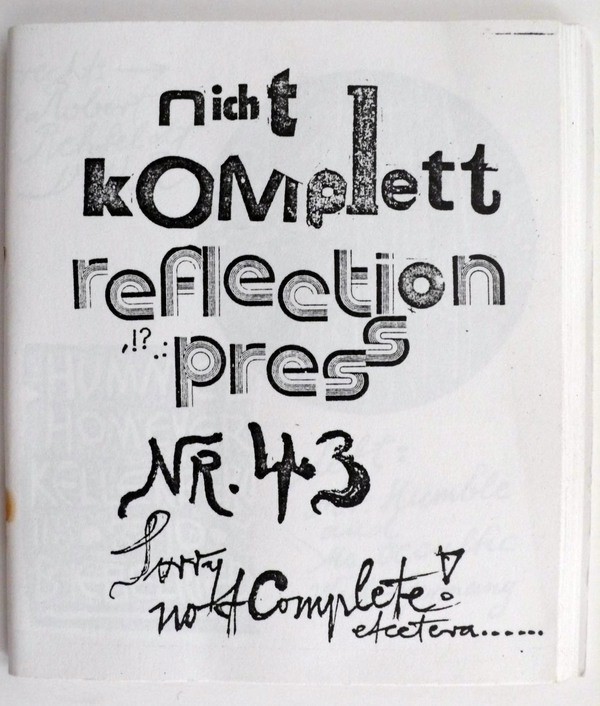 nicht
komplett
reflection
,!?.: press
NR. 43
Sorry
not Complete!
etcetera......